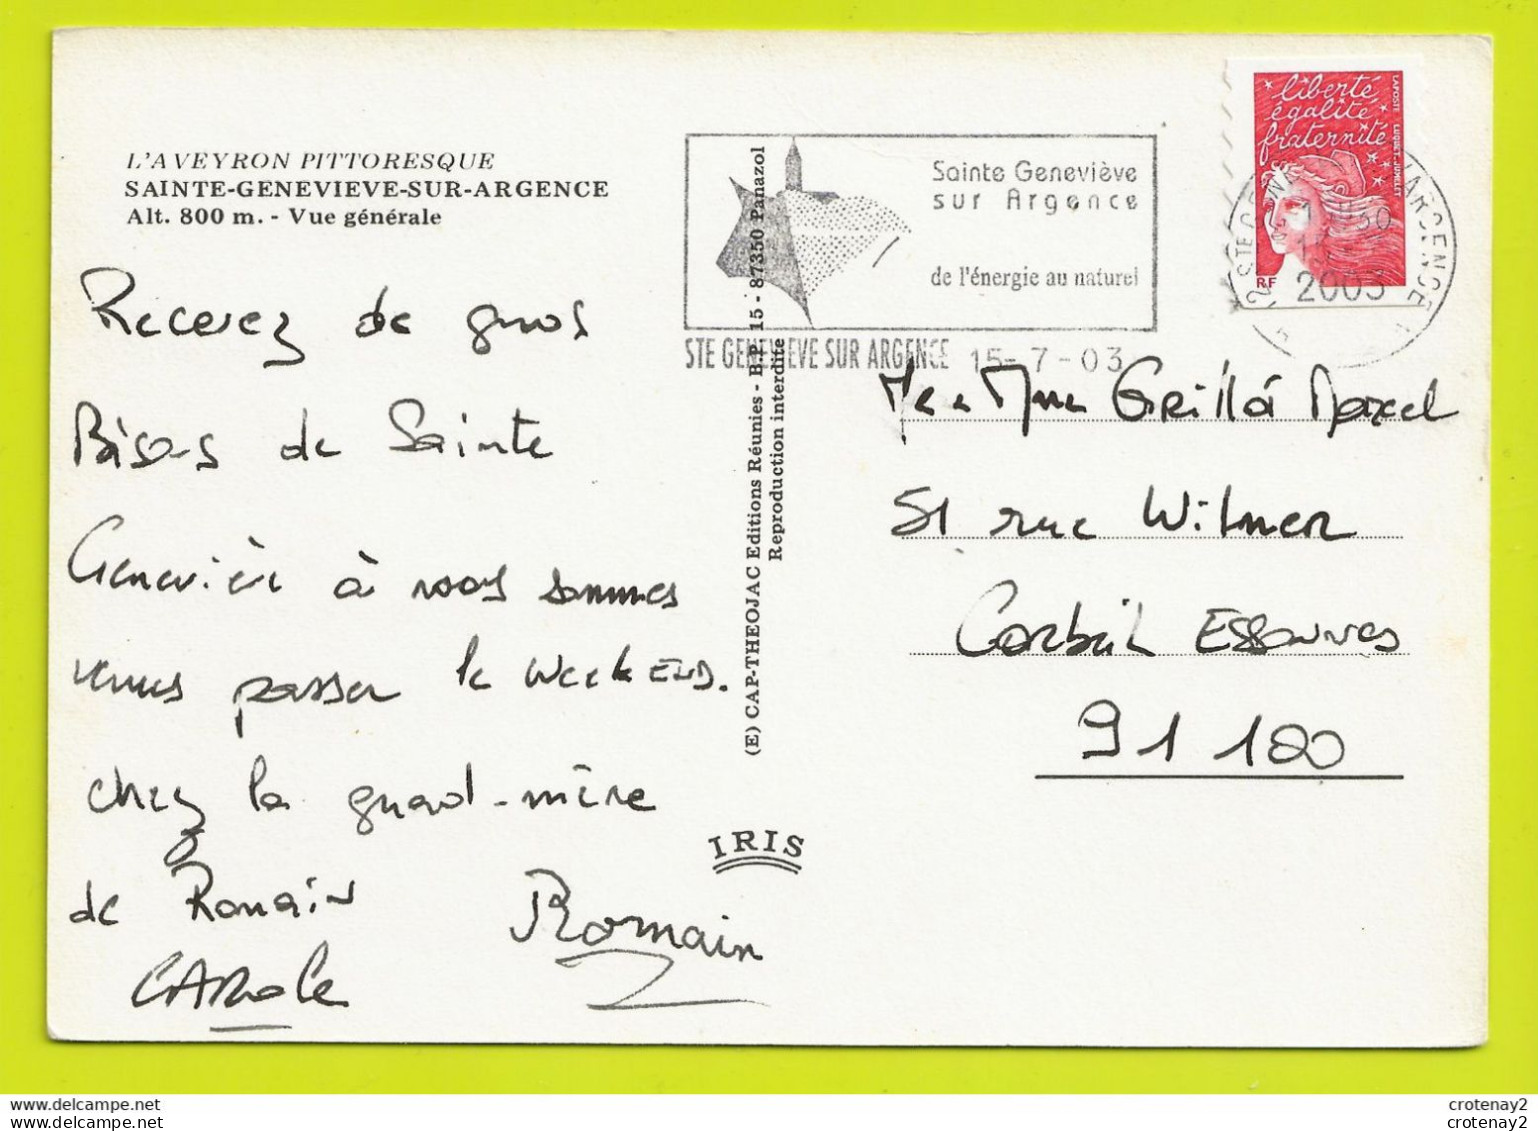 L'AVEYRON PITTORESQUE
SAINTE-GENEVIEVE-SUR-ARGENCE
Alt. 800 m. - Vue générale
Recevez de gros
Bisous de Sainte
Geneviève à nous sommes
venus passer le week END.
chez la grand-mère
de Romain
CAROLE
Romain
(E) CAP-THEOJAC Editions Réunies - B.P. 15 - 87350 Panazol
Reproduction interdite
IRIS
Sainte Geneviève
sur Argence
de l'énergie au naturel
STE GENEVIEVE SUR ARGENCE 15-7-03
liberté
égalité
fraternité
LA POSTE LUQUET-JUMELET
RF
2003
Mr & Mme Grillo Marcel
51 rue Wilmer
Corbeil Essonnes
91 100
www.delcampe.net
www.delcampe.net
crotenay2
crotenay2